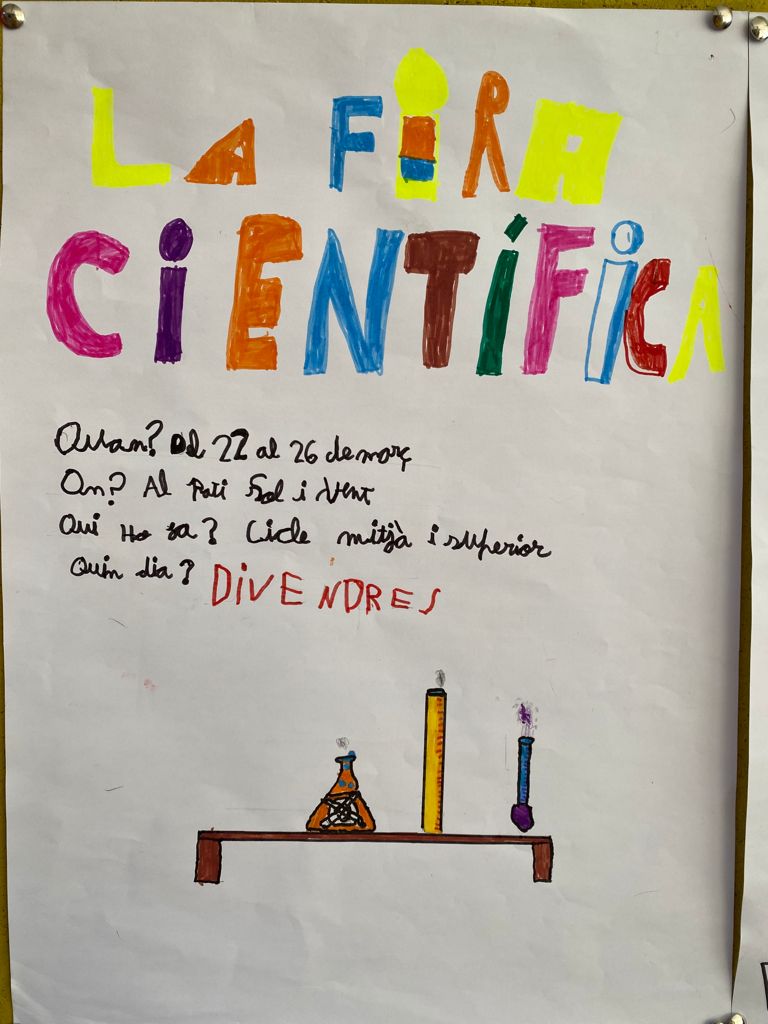 LA FiRA
CiENTÍFiCA
Quan? Del 22 al 26 de març
On? Al Pati Sol i Vent
Qui Ho fa? Cicle mitjà i superior
Quin dia? DiVENDRES